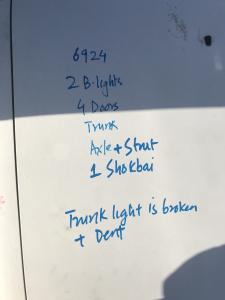 6924
2 B-lights
4 Doors
Trunk
Axle + Strut
1 Shokbai
Trunk light is broken
+ Dent